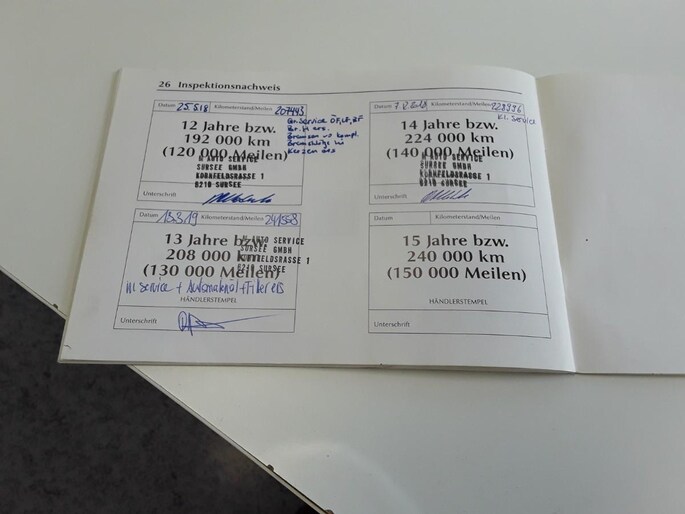 26 Inspektionsnachweis
Datum 25.5.18 Kilometerstand/Meilen 207443
12 Jahre bzw.
192 000 km
(120 000 Meilen)
M-AUTO SERVICE
SURSEE GMBH
KORNFELDSRASSE 1
6210 SURSEE
Unterschrift
Gr. Service ÖF, LF, BF
Bremsen
Kerzen
Datum Kilometerstand/Meilen
14 Jahre bzw.
224 000 km
(140 000 Meilen)
M-AUTO SERVICE
SURSEE GMBH
KORNFELDSRASSE 1
6210 SURSEE
Kl. Service
Unterschrift
Datum 13.3.19 Kilometerstand/Meilen
13 Jahre bzw.
208 000 km
(130 000 Meilen)
M-AUTO SERVICE
SURSEE GMBH
KORNFELDSRASSE 1
6210 SURSEE
Kl Service + Automatenöl + Filter ers
HÄNDLERSTEMPEL
Unterschrift
Datum Kilometerstand/Meilen
15 Jahre bzw.
240 000 km
(150 000 Meilen)
HÄNDLERSTEMPEL
Unterschrift